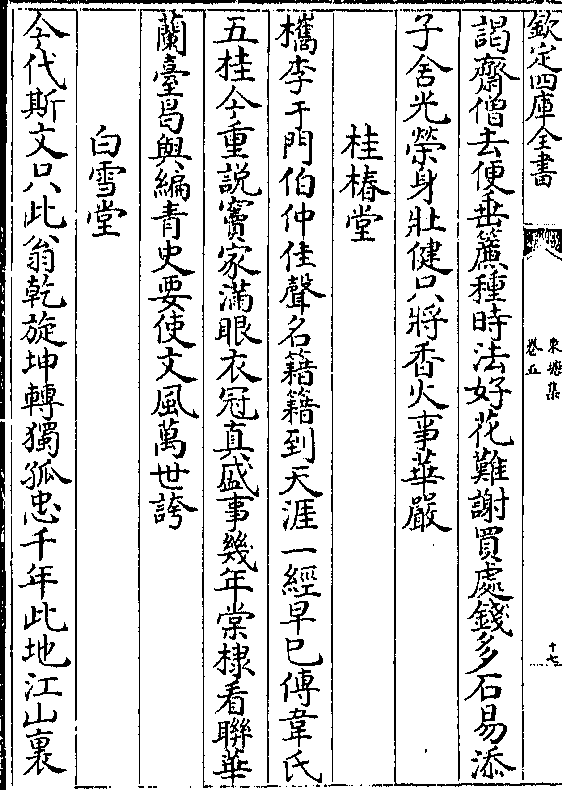 欽定四庫全書
東塘集
卷五
十七
謁齋僧去便垂簾種時法好花難謝買處錢多石易添
子舍光榮身壯健只將香火事華嚴
桂椿堂
檇李于門伯仲佳聲名籍籍到天涯一經早已傳韋氏
五桂今重説竇家滿眼衣冠真盛事幾年棠棣看聯華
蘭臺曷與編青史要使文風萬世誇
白雪堂
今代斯文只此翁乾旋坤轉獨孤忠千年此地江山裏